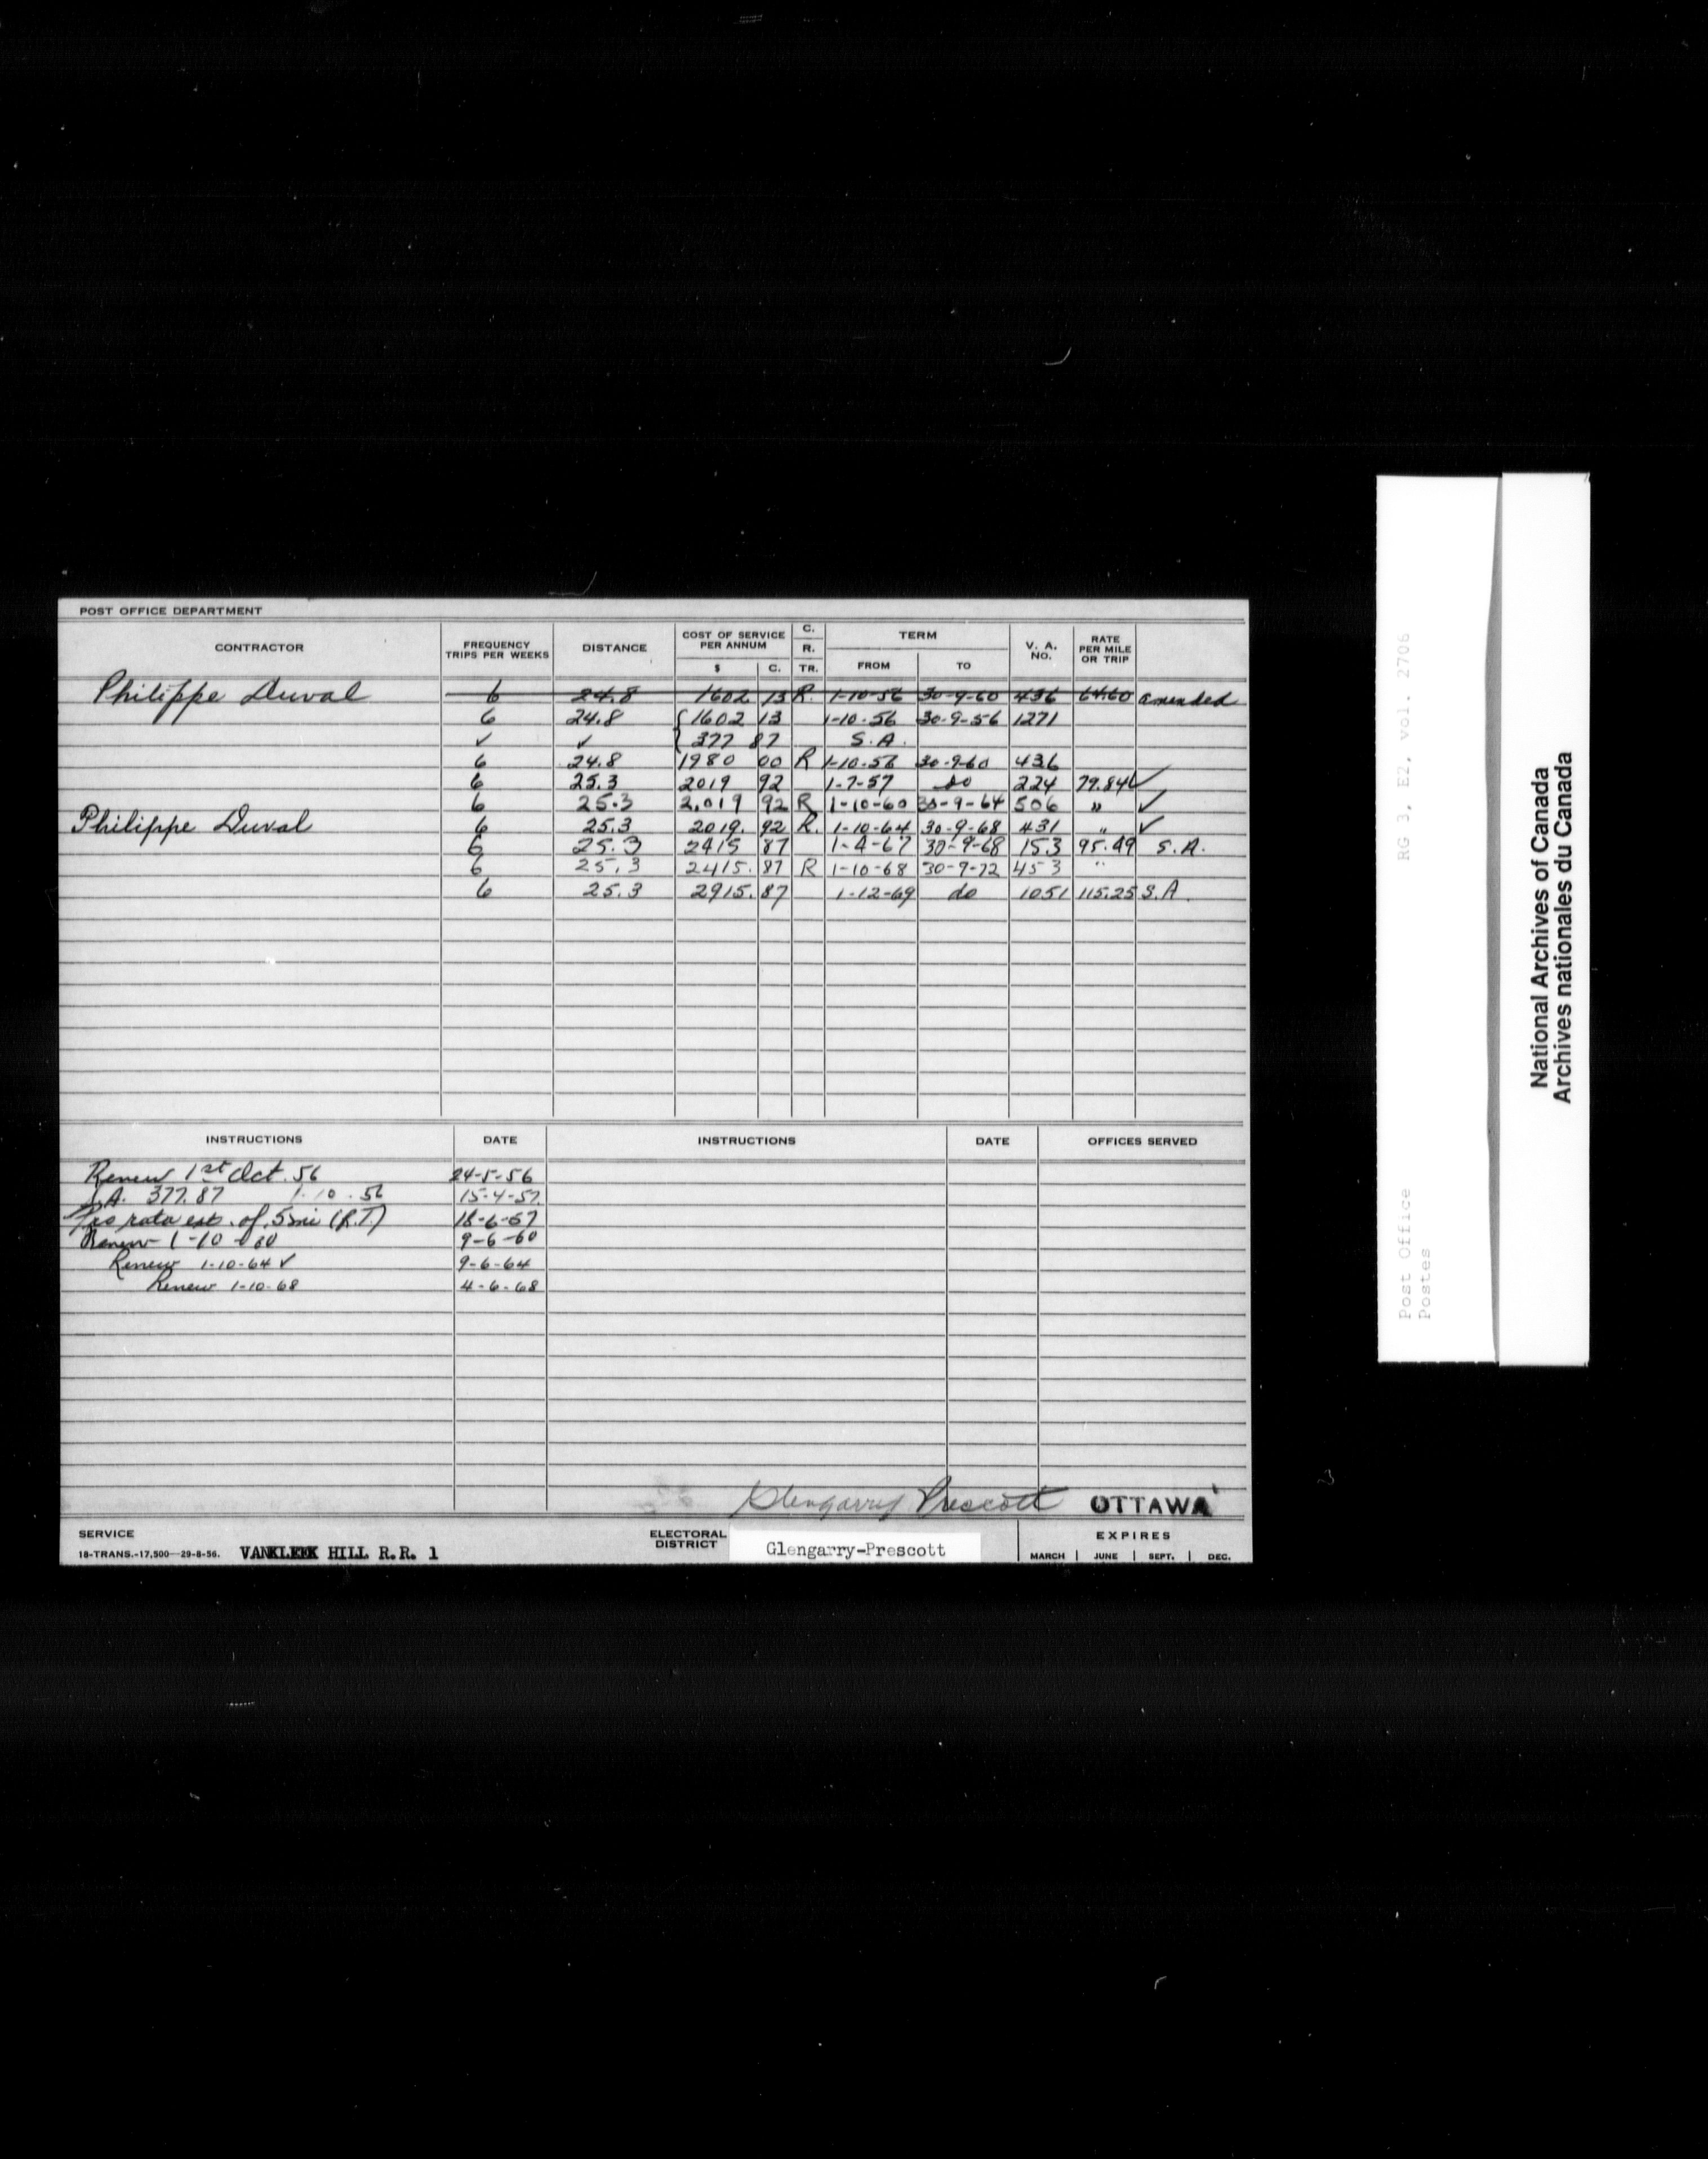 POST OFFICE DEPARTMENT
CONTRACTOR FREQUENCY TRIPS PER WEEKS DISTANCE COST OF SERVICE PER ANNUM $ C. C. R. TR. TERM FROM TO V. A. NO. RATE PER MILE OR TRIP
Philippe Duval 6 24.8 1602 13 R. 1-10-56 30-9-60 436 64.60 amended
6 24.8 { 1602 13 1-10-56 30-9-56 1271
✓ ✓ { 377 87 S.A.
6 24.8 1980 00 R 1-10-56 30-9-60 436
6 25.3 2019 92 1-7-57 do 224 79.84 ✓
6 25.3 2,019 92 R 1-10-60 30-9-64 506 " ✓
Philippe Duval 6 25.3 2019. 92 R. 1-10-64 30-9-68 431 " ✓
6 25.3 2415 87 1-4-67 30-9-68 153 95.49 S.A.
6 25.3 2415. 87 R 1-10-68 30-9-72 453 "
6 25.3 2915. 87 1-12-69 do 1051 115.25 S.A.
INSTRUCTIONS DATE INSTRUCTIONS DATE OFFICES SERVED
Renew 1st Oct. 56 24-5-56
S.A. 377.87 1-10-56 15-4-57
Pro rata ext. of .5 mi (R.T.) 18-6-57
Renew 1-10-60 9-6-60
Renew 1-10-64 ✓ 9-6-64
Renew 1-10-68 4-6-68
Glengarry Prescott OTTAWA
SERVICE
18-TRANS.-17,500-29-8-56. VANKLEEK HILL R.R. 1
ELECTORAL DISTRICT Glengarry-Prescott
EXPIRES
MARCH | JUNE | SEPT. | DEC.
RG 3, E2, vol. 2706
Post Office
Postes
National Archives of Canada
Archives nationales du Canada